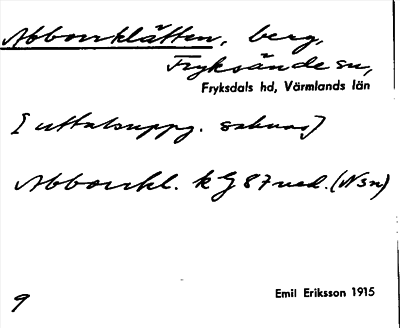 Abborrklätten, berg,
Fryksände sn,
Fryksdals hd, Värmlands län
[uttalsuppg. saknas]
Abborrkl. k G 87 ned. (N sn)
Emil Eriksson 1915
9